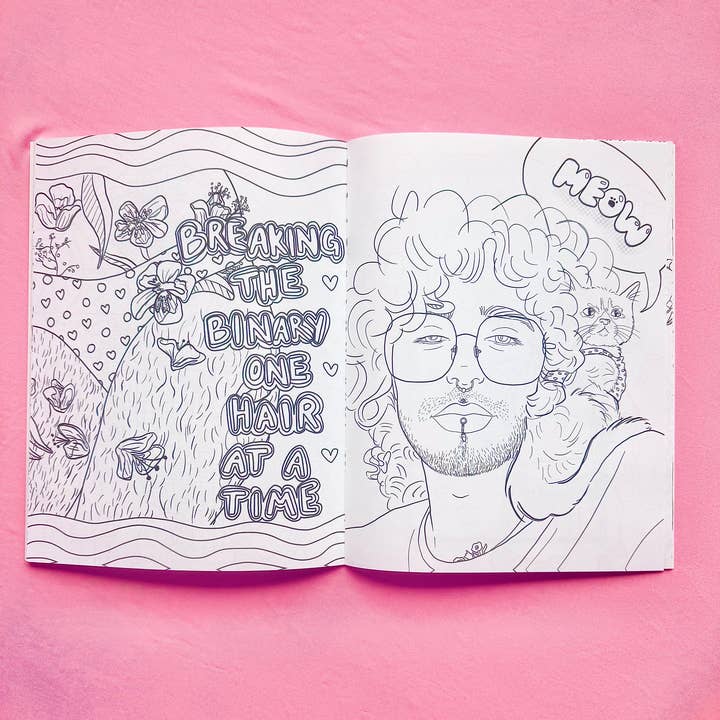 BREAKING
THE
BINARY
ONE
HAIR
AT A
TIME
MEOW